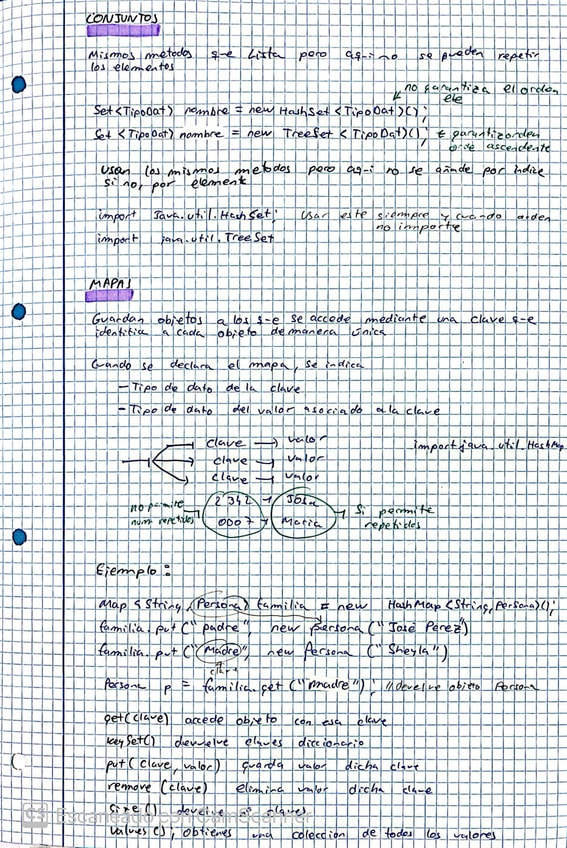 CONJUNTOS
Mismos métodos que Lista pero aquí no se pueden repetir
los elementos
no garantiza el orden
ele
Set<TipoDat> nombre = new HashSet<TipoDat>();
Set<TipoDat> nombre = new TreeSet<TipoDat>(); garantiza orden
ascendente
Usan los mismos metodos pero aqui no se añade por indice
si no, por element
import Java.util.HashSet; Usar este siempre y cuando orden
no importe
import java.util.TreeSet
MAPAS
Guardan objetos a los que se accede mediante una clave que
identifica a cada objeto de manera única
Cuando se declara el mapa, se indica
- Tipo de dato de la clave
- Tipo de dato del valor asociado a la clave
clave → valor import java.util.HashMap
clave → valor
clave → valor
no permite 2342 → Jose Si permite
num repetidos 0007 → Maria repetidos
Ejemplo:
Map<String, Persona> familia = new HashMap<String, Persona>();
familia.put("padre", new Persona("José Perez")
familia.put("Madre", new Persona("Sheyla")
clave
Persona p = familia.get("madre"); //devuelve objeto Persona
get(clave) accede objeto con esa clave
keySet() devuelve claves diccionario
put(clave, valor) guarda valor dicha clave
remove(clave) elimina valor dicha clave
size() devuelve nº claves
values(); obtienes una coleccion de todos los valores
CS Escaneado con CamScanner